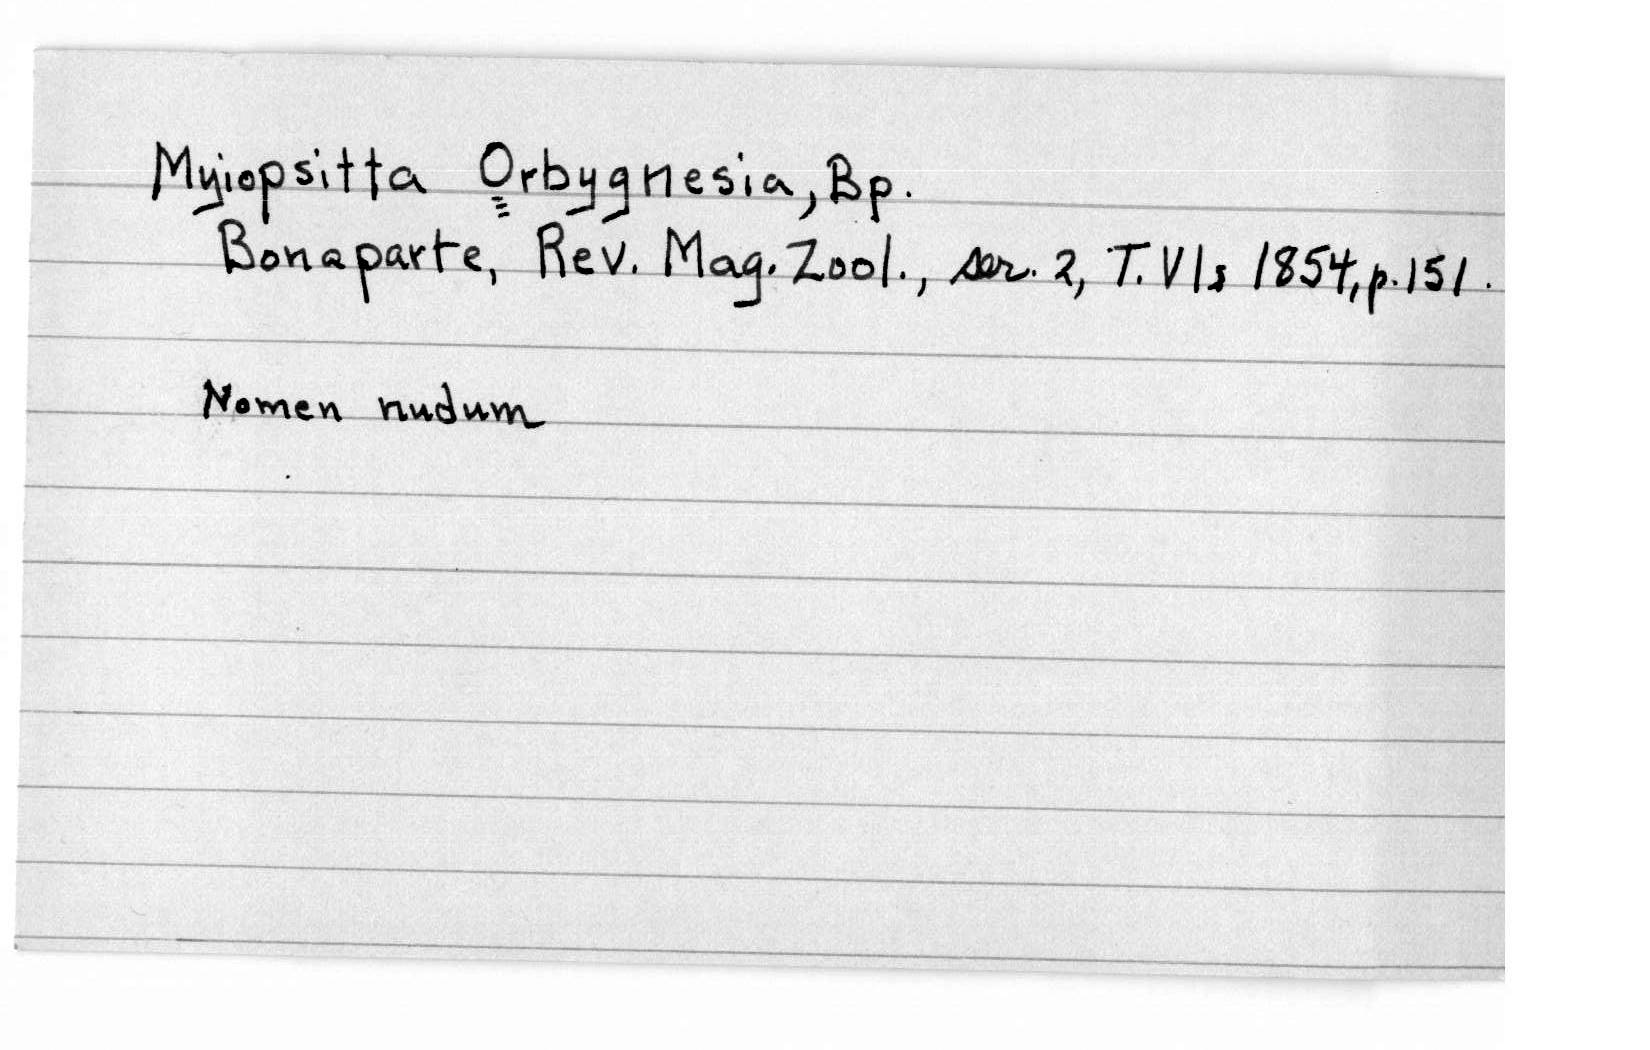 Myiopsitta Orbygnesia, Bp.
Bonaparte, Rev. Mag. Zool., ser. 2, T. VI, 1854, p. 151.
Nomen nudum